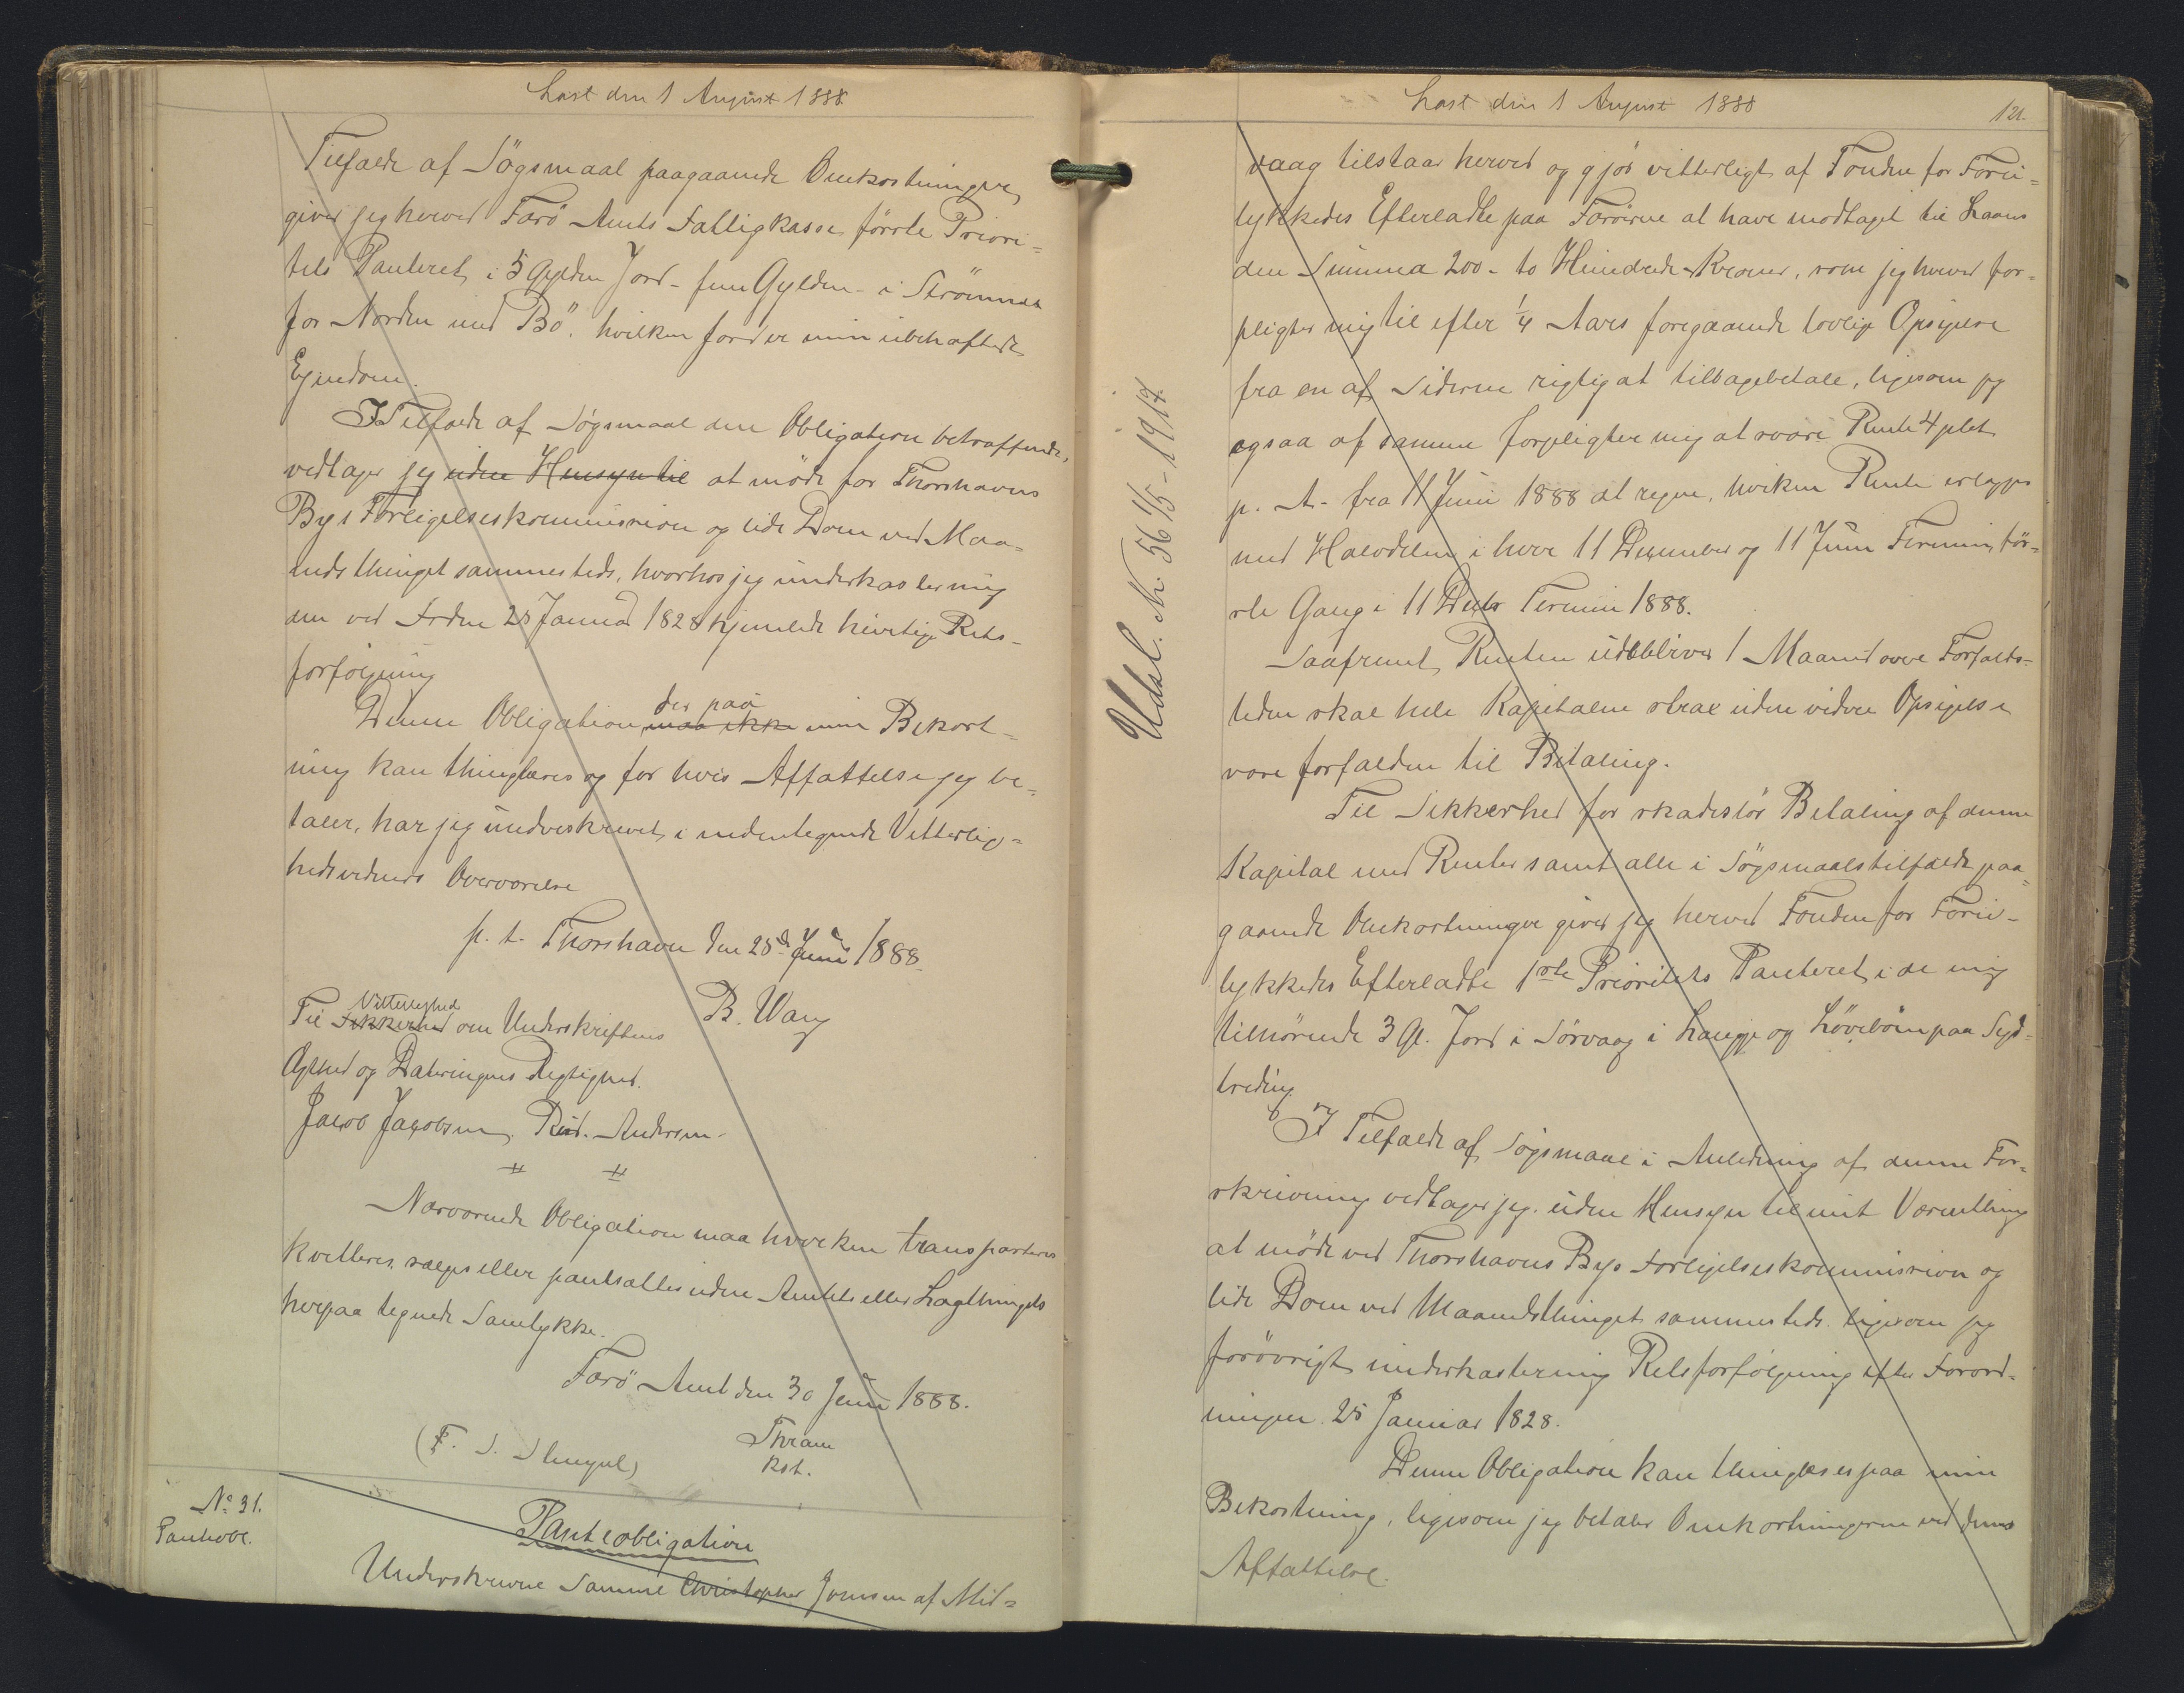 Læst den 1 August 1888
Tilfælde af Søgsmaal paagaaende Omkostninger
giver jeg herved Færø Amts Fattigkasse første Priori=
tets Panteret i 5 Gylden Jord - fem Gylden - i Strömnæs
for Norden med Bö, hvilken Jord er min ubehæftede
Ejendom.
I Tilfælde af Søgsmaal denne Obligation betræffende,
vedtager jeg uden Hensyn til at möde for Thorshavns
Bys Forligelseskommission og lide Dom ved Maa=
nedsthinget sammesteds, hvorhos jeg underkaster mig
den ved Frdn 25 Januar 1828 hjemlede hurtige Rets-
forfölgning
Denne Obligation maa ikke der paa min Bekost=
ning kan thinglæses og for hvis Affattelse jeg be=
taler, har jeg underskrevet i nedentegnede Vitterlig=
hedsvidners Overværelse
p. t. Thorshavn den 28de Juni 1888.
B. Wang
Til Sikkerhed Vitterlighed om Underskriftens
Ægthed og Dateringens Rigtighed.
Jacob Jacobsen. Rud. Andersen.
Nærværende Obligation maa hverken transporteres
kvitteres, sælges eller pantsættes uden Amtets eller Lagthingets
herpaa tegnede Samtykke.
Færö Amt den 30 Juni 1888.
(F. S. Stempel)
Thram
kst.
No 31.
Panteobl.
Panteobligation
Underskrevne Samuel Christopher Joensen af Mid=
Læst den 1 August 1888
121.
Udsl. Nr. 56 1/5-1914
vaag tilstaar herved og gjör vitterligt af Fonden for Foru=
lykkedes Efterladte paa Færöerne at have modtaget til Laans
den Summa 200 - to Hundrede - Kroner, som jeg herved for=
pligter mig til efter 1/4 Aars foregaaende lovlig Opsigelse
fra en af Siderne rigtig at tilbagebetale, ligesom jeg
ogsaa af samme forpligter mig at svare Rente 4 pCt
p. A. fra 11 Juni 1888 at regne, hvilken Rente erlægges
med Halvdelen i hver 11 December og 11 Juni Termin för=
ste Gang i 11 Decbr Termin 1888.
Saafremt Renten udebliver 1 Maaned over Forfalds=
tiden skal hele Kapitalen strax uden videre Opsigelse
være forfalden til Betaling.
Til Sikkerhed for skadeslös Betaling af denne
Kapital med Renter samt alle i Sögsmaalstilfælde paa=
gaaende Omkostninger giver jeg herved Fonden for Foru=
lykkedes Efterladte 1ste Prioritets Panteret i de mig
tilhörende 3 Gl. Jord i Sörvaag i Lauggje og Löveböen paa Syd=
treding
I Tilfælde af Sögsmaal i Anledning af denne For=
skrivning vedtager jeg, uden Hensyn til mit Værnething
at möde ved Thorshavns Bys Forligelseskommission og
lide Dom ved Maanedsthinget sammesteds ligesom jeg
forövrigt underkaster mig Retsforfölgning efter Forord=
ningen 25 Januar 1828.
Denne Obligation kan thinglæses paa min
Bekostning, ligesom jeg betaler Omkostningerne ved dens
Affattelse.